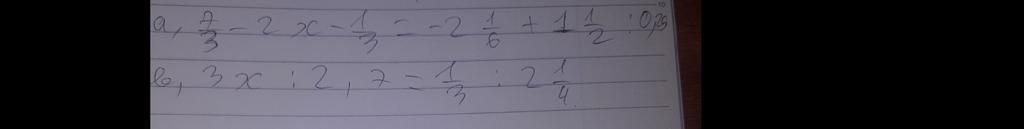 a, 7/3 - 2x - 1/3 = -2 1/6 + 1 1/2 : 0,25
b, 3x : 2,7 = 1/3 : 2 1/4